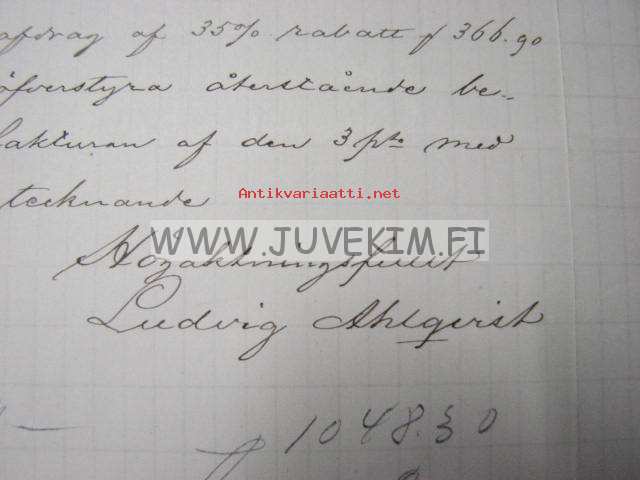 afdrag af 35% rabatt f 366.90
öfverstyra återstående be-
fakturan af den 3 pto med
tecknande
Antikvariaatti.net
WWW.JUVEKIM.FI
Högaktningsfullt
Ludvig Ahlqvist
1048.30